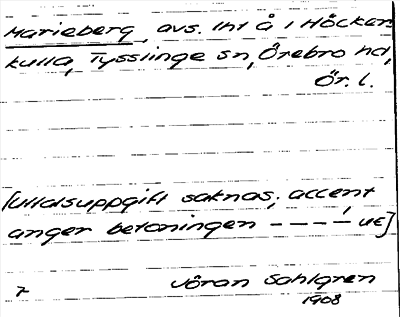 Marieberg, avs. int å 1 Höcker-
kulla, Tysslinge sn, Örebro hd,
Ör. l.
[Uttalsuppgift saknas; accent
anger betoningen - - - -́ UE]
Jöran Sahlgren
1908